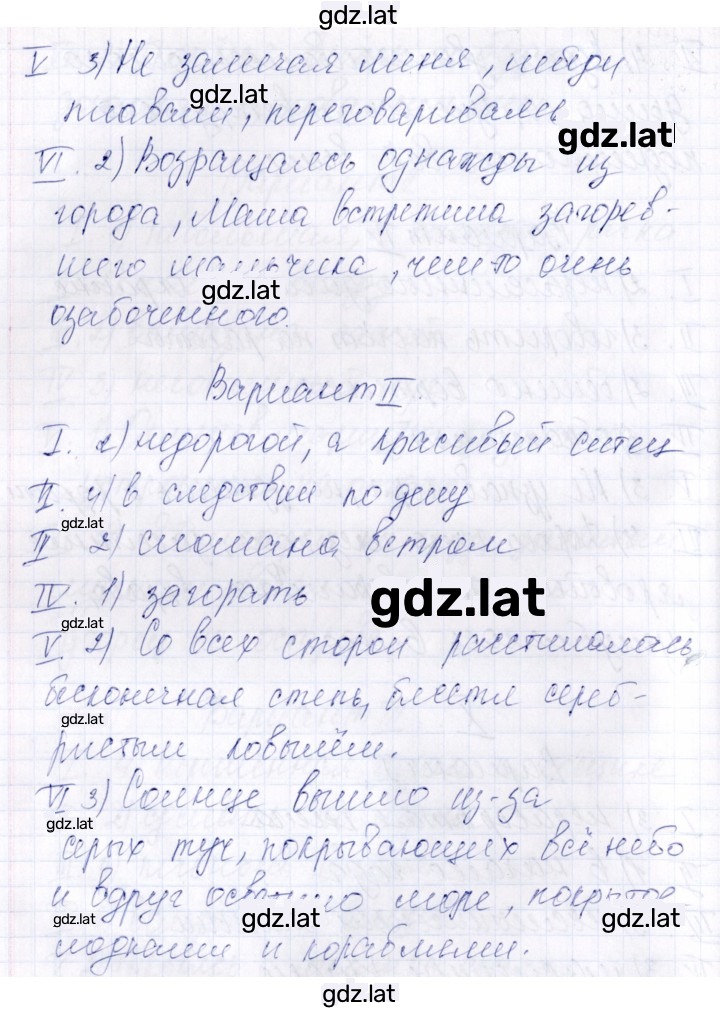 gdz.lat
V 3) Не замечая меня, лебеди
плавали, переговаривались
gdz.lat
gdz.lat
VI. 2) Возращаясь однажды из
города, Маша встретила загорев-
шего мальчика, чем-то очень
gdz.lat
озабоченного.
Вариант II.
I. 2) недорогой, а красивый ситец
II. 4) в следствии по делу
gdz.lat
III 2) сломана ветром
IV. 1) загорать
gdz.lat
gdz.lat
V. 2) Со всех сторон расстилалась
бесконечная степь, блестя сереб-
gdz.lat
ристым ковылём.
VI 3) Солнце вышло из-за
gdz.lat
серых туч, покрывающих всё небо
и вдруг осветило море, покрытое
gdz.lat
gdz.lat
gdz.lat
лодками и кораблями.
gdz.lat